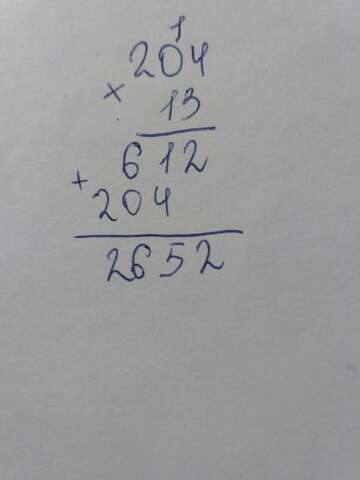 1
204
× 13
612
+ 204
2652